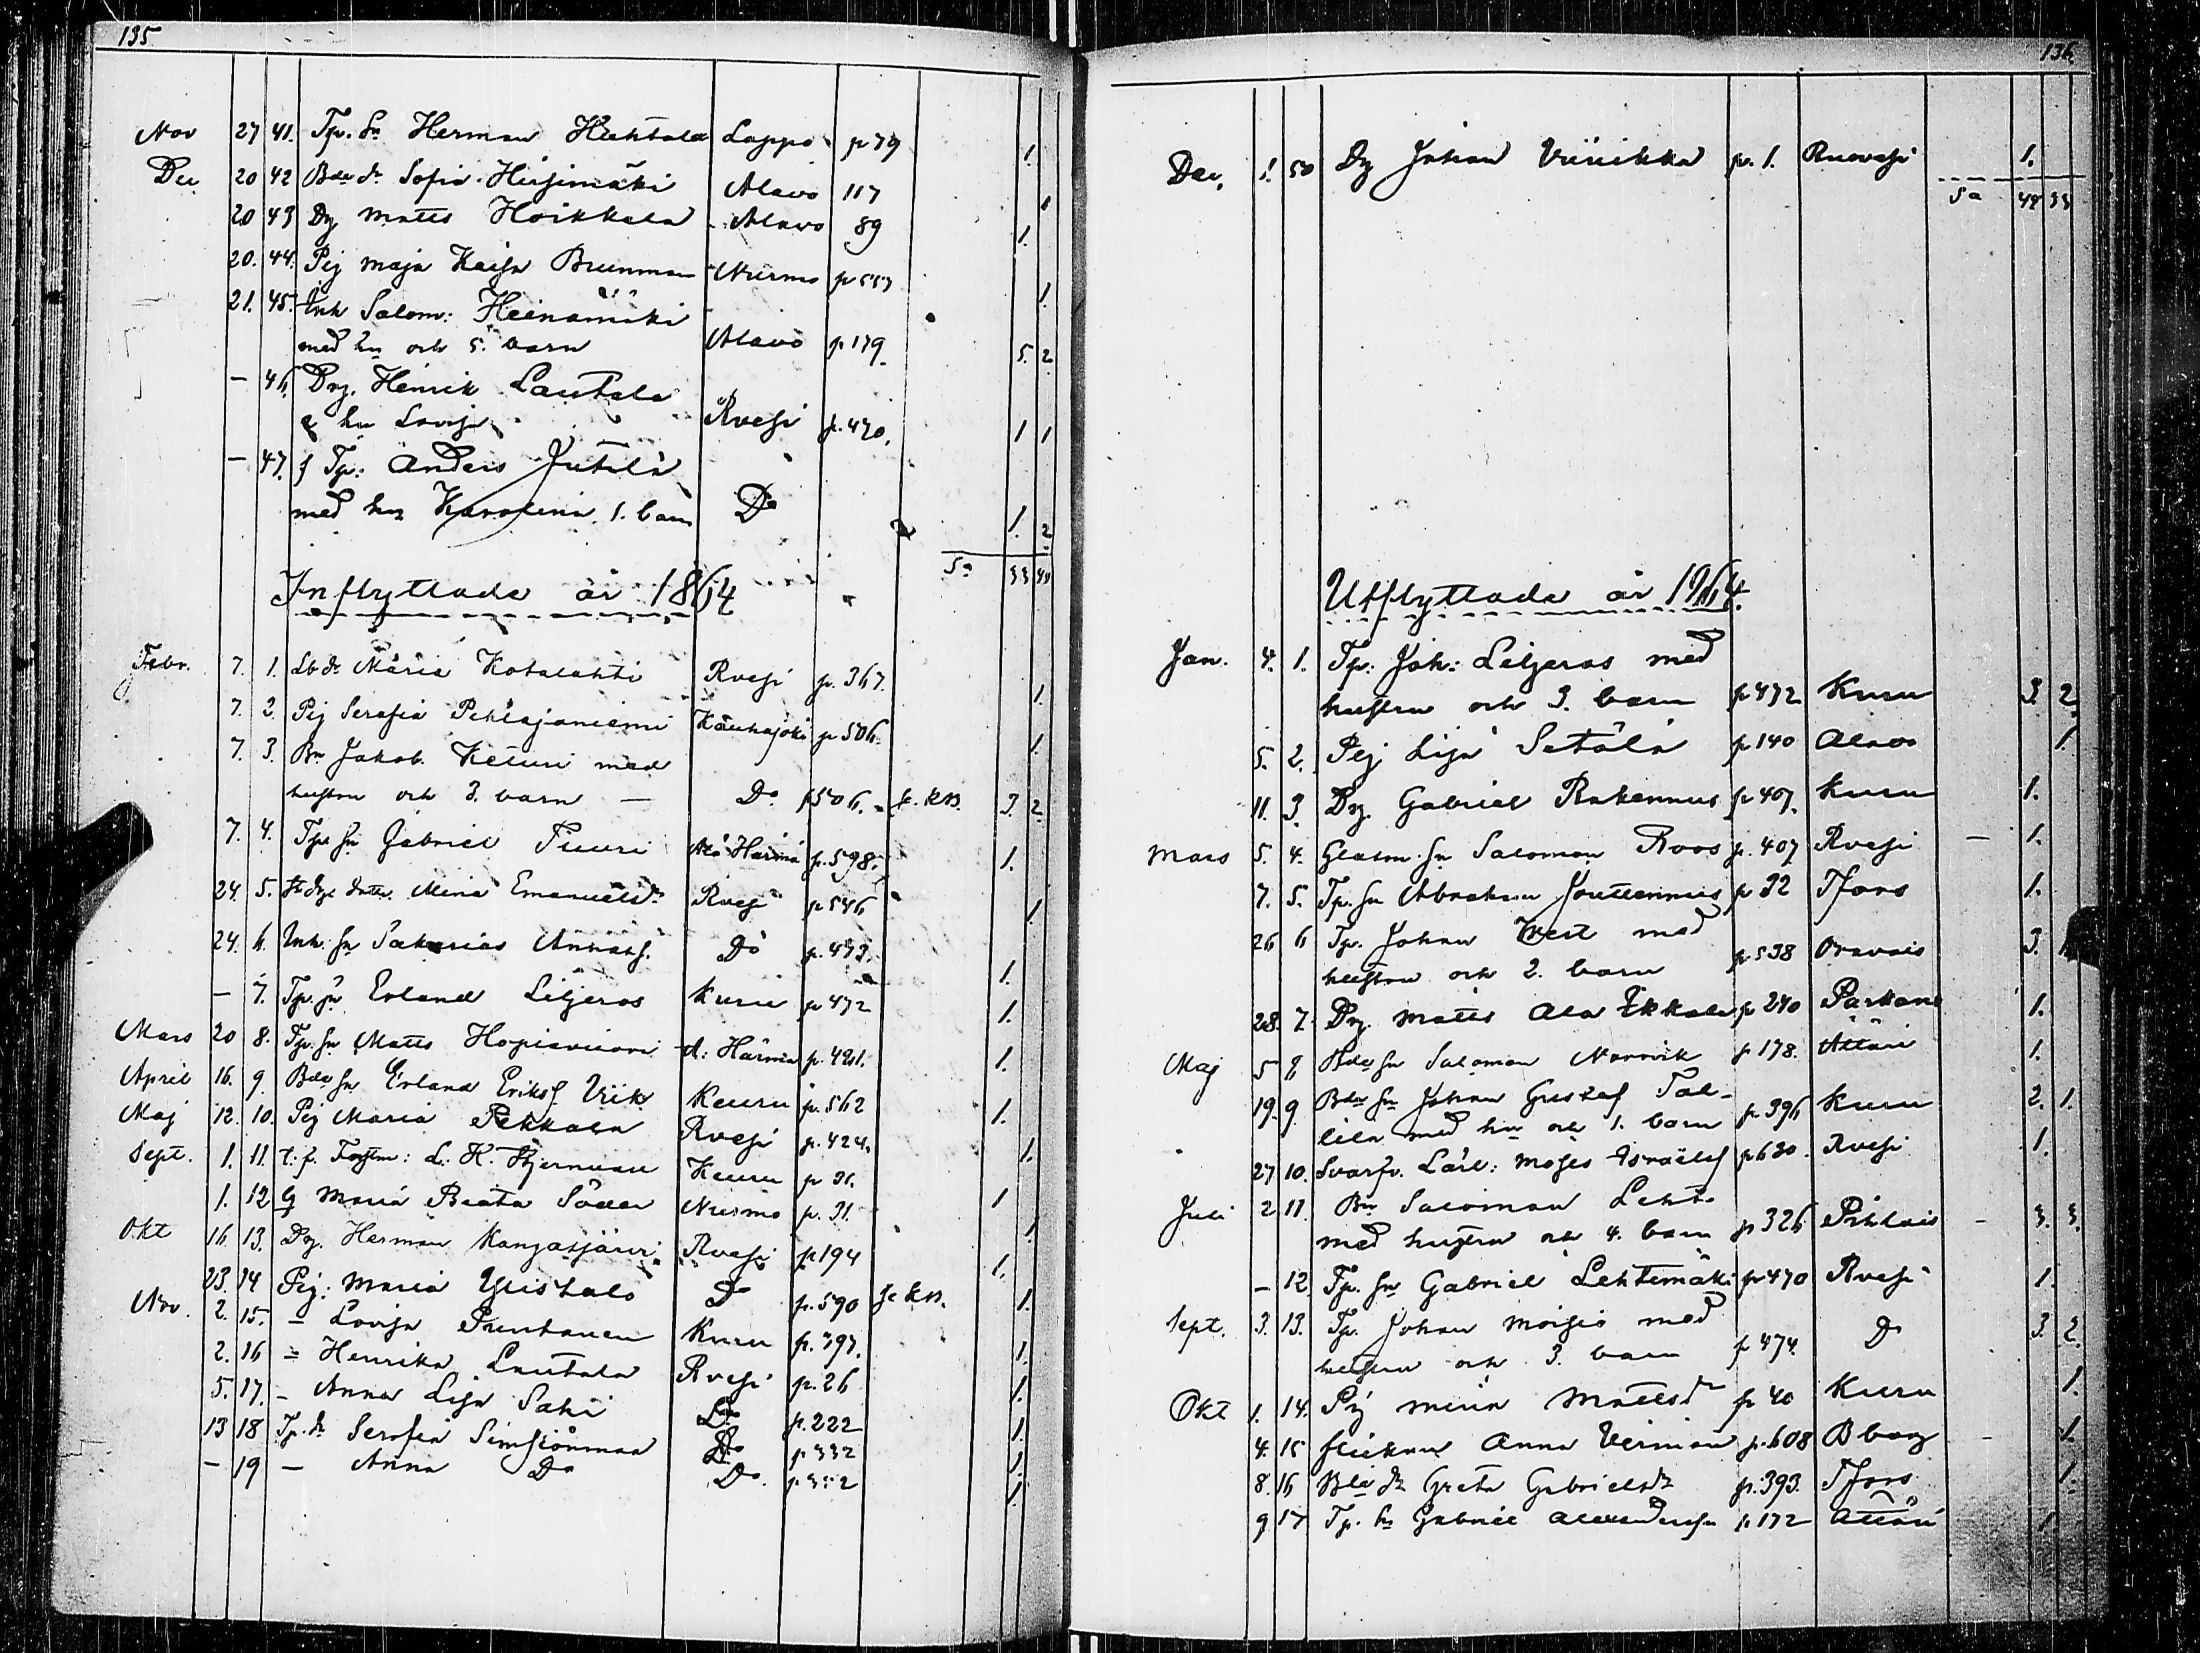 135
Nov 27 41. Tp. Sn Herman Huhtala Lappo p 79 1.
Dec 20 42 Bde dr Sofia Hirsimäki Alavo 117 1
20 43 Dg Matts Hoikkala Alavo 89 1.
20. 44. Pig Maja Kaisa Brunman Nurmo p 553 1.
21. 45. Inh Salom: Heinämäki
med hu och 5. barn Alavo p 179. 5. 2
– 46. Drg. Henrik Lautala
& hu Lovisa Rvesi p. 470. 1 1
– 47. f Tp: Anders Jutila
med hu Karolina 1. barn Do 1. 2
Sa 33 40
Inflyttade år 1864
Febr. 7. 1. Lb dr Maria Kotalahti Rvesi p. 367. 1.
7. 2. Pig Serafia Pihlajaniemi Kauhajoki p 506. 1.
7. 3. Bn Jakob Keturi med
hustru och 3. barn – Do p 506. 3. 2.
7. 4. Tp Sn Gabriel Puuri Ala Härmä p. 598. 1.
24. 5. dotter Mina Emanuelsdr Rvesi p 546 1.
24. 6. Inh. Sn Sakarias Annaks. Do p. 473. 1.
– 7. Tp. Sn Erland Liljeros Kuru p 472 1.
Mars 20 8. Tp. Sn Matts Hopiavuori A: Härmä p. 421. 1.
April 16. 9 Bde Sn Erland Eriks. Viik Keuru p. 562 1.
Maj 12. 10. Pig Maria Pekkala Rvesi p. 424. 1.
Sept. 1. 11. t. f. Forstm: L. K. Stjernvan Keuru p 31. 1
1. 12 G Maria Beata Söder Nurmo p. 31. 1.
Okt 16. 13. Dg. Herman Kangasjärvi Rvesi p 194 1.
23. 14 Pig: Maria Ylistalo Do p. 590 1.
Nov. 2. 15. – Lovisa Pentanen Kuru p. 397. 1.
2. 16 = Henrika Lautala Rvesi p. 26 1.
5. 17. – Anna Lisa Saki Do p. 222 1.
13 18 Tp. dr Serafia Simsiönmaa Do p 332 1.
– 19 – Anna Do Do. p 332 1.
136.
Dec. 1. 50 Dg Johan Viinikka p. 1. Ruovesi 1.
Sa 48 33
Utflyttade år 1864.
Jan. 4. 1. Tp: Joh: Liljeros med
hustru och 3. barn p 472 Kuru 3. 2.
5. 2. Pig Lisa Setälä p 140 Alavo 1.
11. 3. Dg. Gabriel Rakennus p 407. Kuru 1.
Mars 5. 4. Glasm. Sn Salomon Roos p. 407 Rvesi – 1.
7. 5. Tp. Sn Abraham Jouttenus p 32 Tfors 1.
26 6 Tp. Johan West med
hustru och 2. barn p 538 Oravais 3.
28. 7. Dg. Matts Ala Ekkala p 240 Parkano 1.
Maj 5 8 Bde Sn Salomon Norrvik p 178. Ätäri 1.
19. 9. Bde Sn Johan Gustaf Tal-
lila med hu och 1. barn p. 396 Kuru 2. 1.
27 10. Svarfv. Lärl: Moses Israelss p 630. Rvesi 1.
Juli 2 11. Bn Salomon Leht.
med hustru och 4. barn p 326 Pihlais – 3. 3.
– 12 Tp. Sn Gabriel Lehtimäki p 470 Rvesi 1.
Sept. 3. 13. Tp. Johan Moisio med
hustru och 3. barn p 474. Do 3. 2.
Okt 1. 14. Pig Miina Mattsdr p 40 Kuru 1.
4. 15 flickan Anna Verman p. 608 Bborg – 1.
8. 16 Bde dr Greta Gabrielsdr p. 393. Tfors 1.
9 17 Tp. Sn Gabriel Alexandersson p 172 Attäri 1